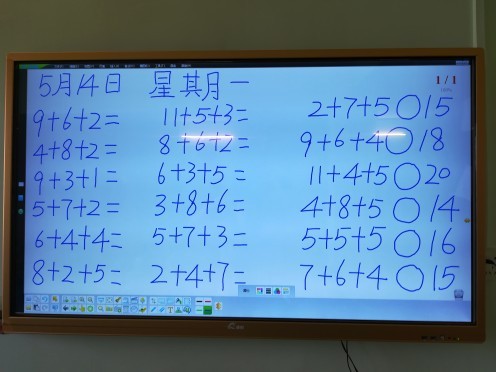 5月14日 星期一
1/1
9+6+2= 11+5+3= 2+7+5○15
4+8+2= 8+6+2= 9+6+4○18
9+3+1= 6+3+5= 11+4+5○20
5+7+2= 3+8+6= 4+8+5○14
6+4+4= 5+7+3= 5+5+5○16
8+2+5= 2+4+7= 7+6+4○15